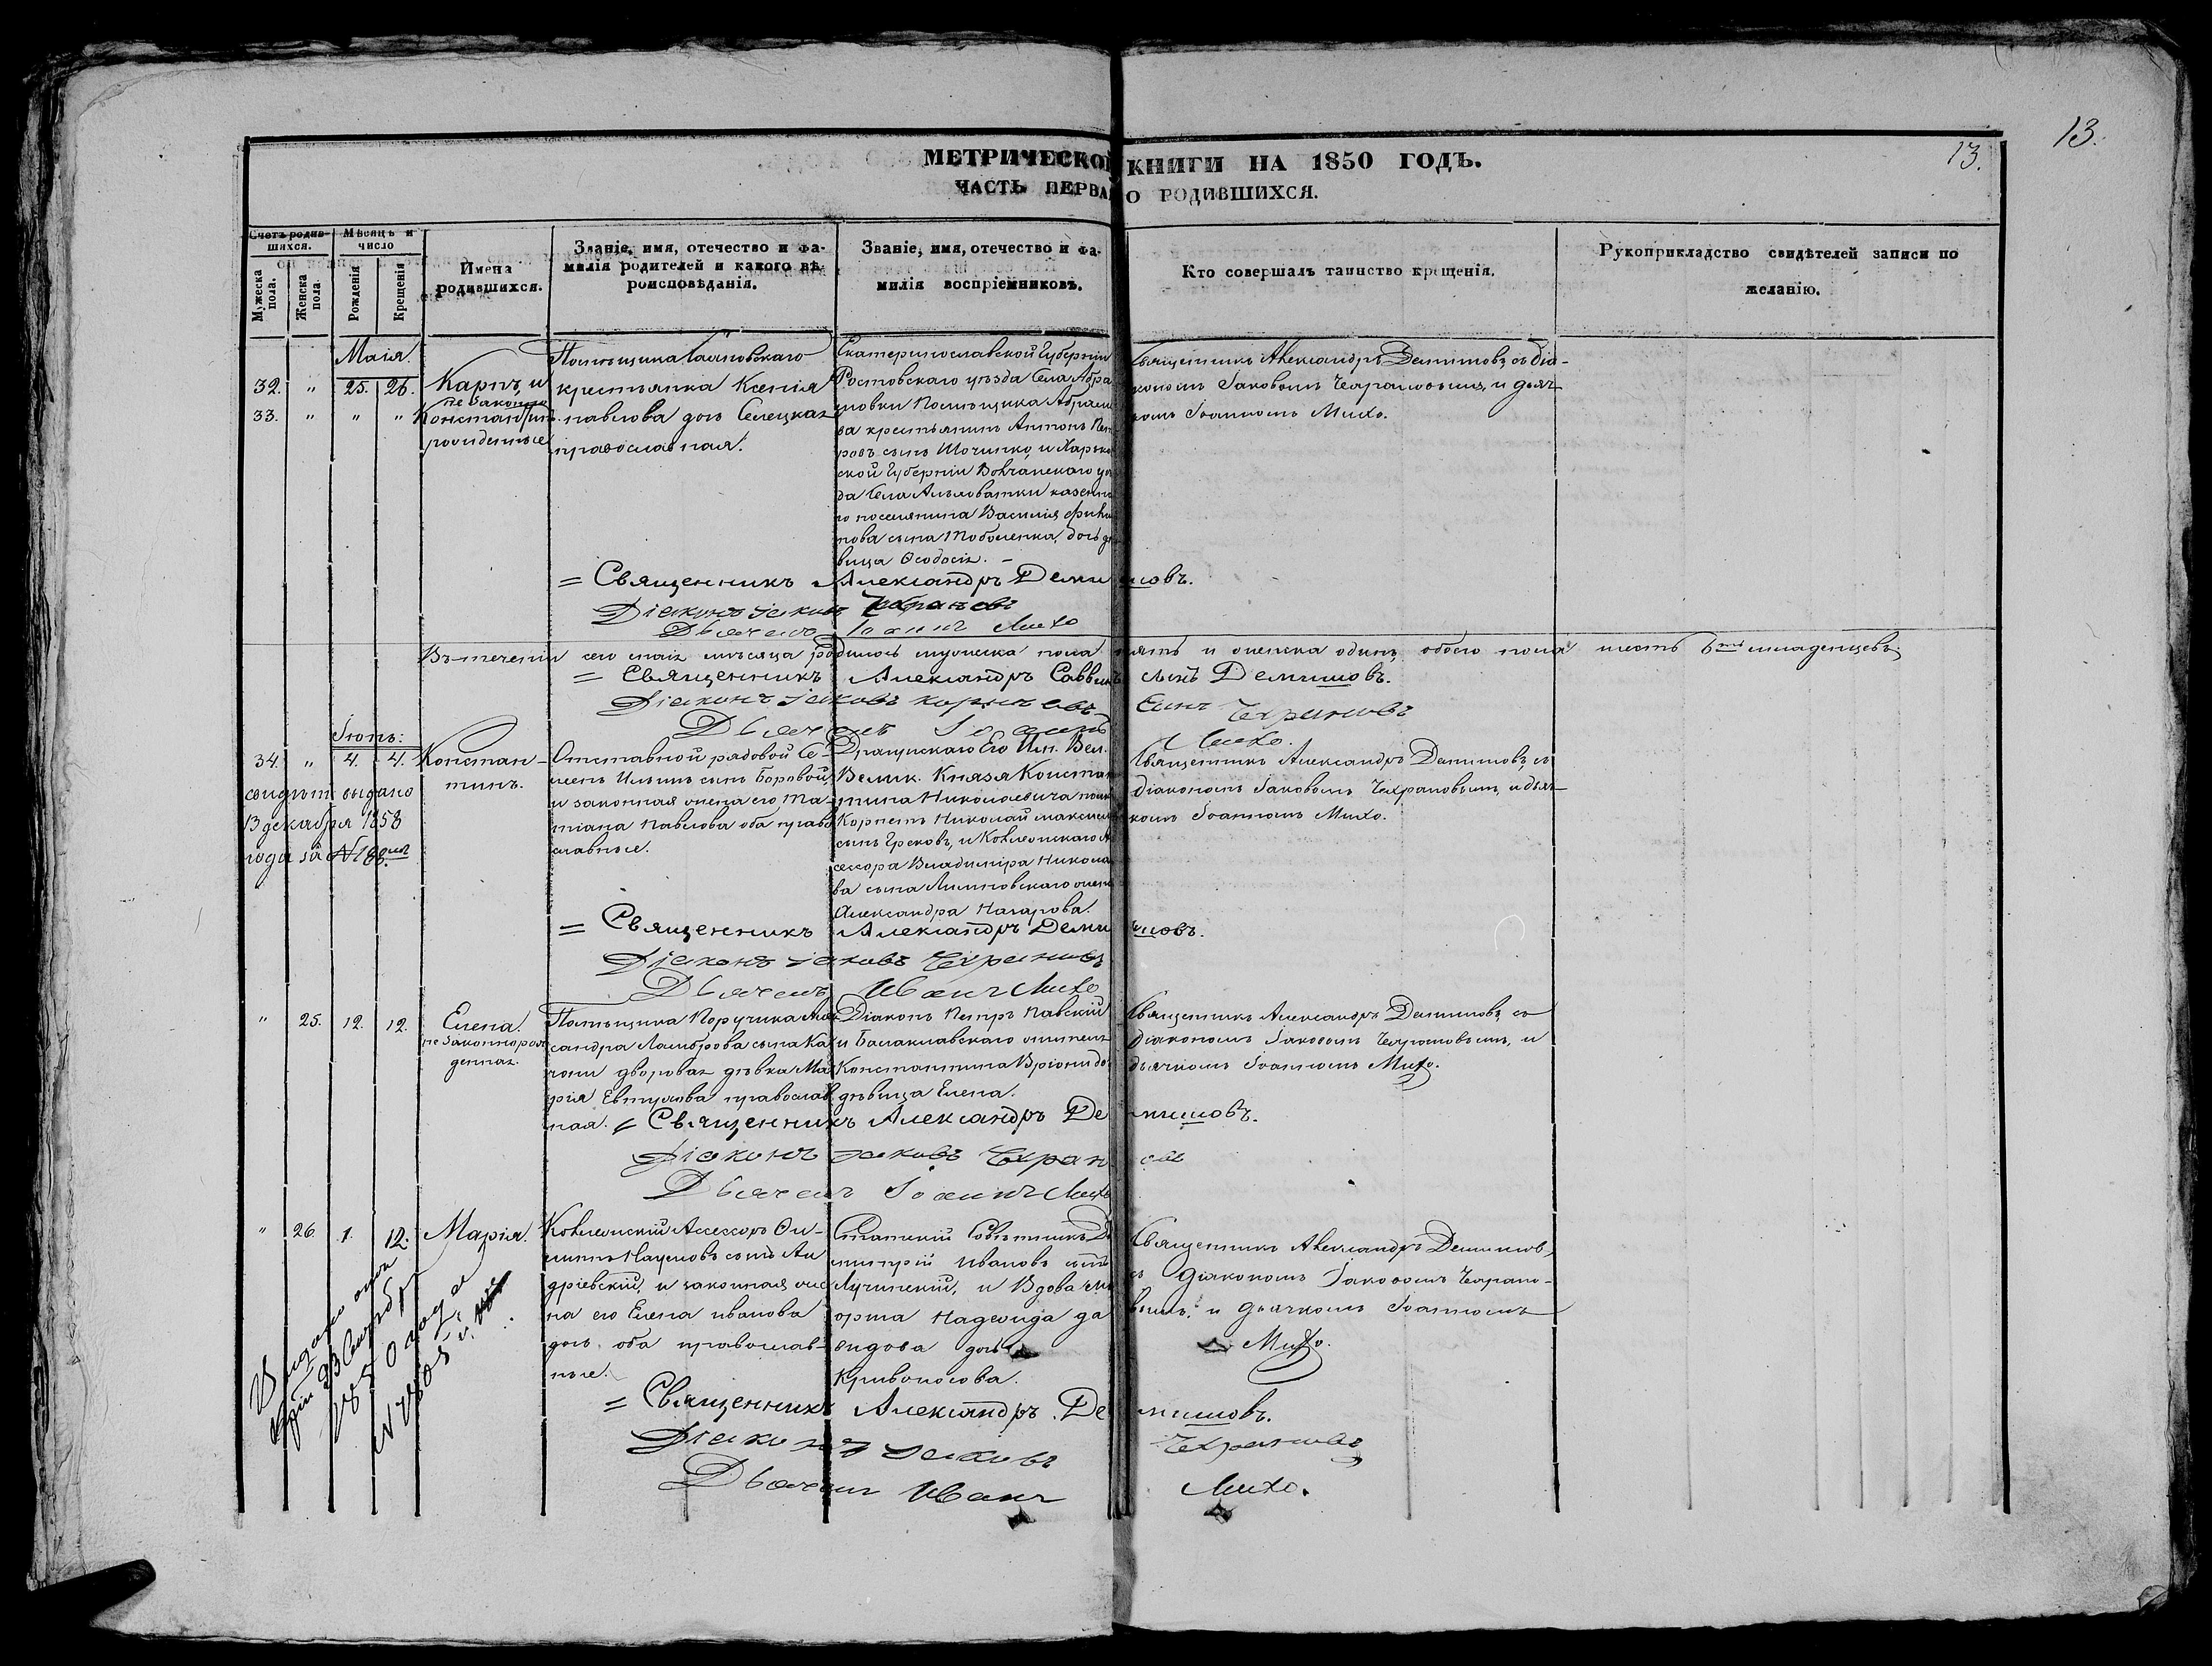 13.
13.
МЕТРИЧЕСКОЙ КНИГИ НА 1850 ГОДЪ.
ЧАСТЬ ПЕРВАЯ О РОДИВШИХСЯ.
Счетъ родив-
шихся.
Мужеска
пола.
Женска
пола.
Мѣсяцъ и
число
Рожденія
Крещенія
Имена
родившихся.
Званіе, имя, отечество и фа-
милія родителей и какого вѣ-
роисповѣданія.
Званіе, имя, отечество и фа-
милія воспріемниковъ.
Кто совершалъ таинство крещенія.
Рукоприкладство свидѣтелей записи по
желанію.
Маія.
32. " 25. 26.
33. " " "
Карпъ и
не законно
Константинъ
рожденные
Помѣщика
крестьянка Ксенія
павлова дочь Селецкая
православная.
Екатеринославской Губерніи
Ростовскаго уѣзда Села Абра
мовки Помѣщика Абрамо
ва крестьянинъ Антонъ Пет
ровъ сынъ и Харько
ской Губерніи Волчанскаго уѣз
да Села казенна
го поселянина Василія Фили
пова сына дочь дѣ
вица Ѳеодосія. –
Священникъ Александръ Демяновъ, съ діа-
кономъ Іаковомъ Чехрановымъ, и дьяч
комъ Іоанномъ Михо.
= Священникъ Александръ Демяновъ.
Діаконъ Іаковъ Чехрановъ
Дьячекъ Іоаннъ Михо
Въ теченіи сего маія мѣсяца родилось мужеска пола пять и женска одинъ, обоего пола шесть 6ть младенцевъ.
= Священникъ Александръ Саввинъ сынъ Демяновъ.
Діаконъ Іаковъ Сынъ Чехрановъ
Дьячекъ Іоаннъ Михо.
Іюнь:
34. " 4. 4.
свидѣт: выдано
13 декабря 1858
года за №
Констан-
тинъ.
Отставной рядовой Се-
менъ Ильинъ сынъ Боровой,
и законная жена его, Та-
тіана Павлова оба право
славные.
Драгунскаго Его Им. Выс.
Велик. Князя Констан
тина Николаевича полка
Корнетъ Николай
сынъ Грековъ, и Коллежскаго А
сессора Владиміра Никола
ва сына жена
Александра Назарова.
Священникъ Александръ Демяновъ, съ
діакономъ Іаковомъ Чехрановымъ, и дьяч
комъ Іоанномъ Михо.
= Священникъ Александръ Демяновъ.
Діаконъ Іаковъ Чехрановъ
Дьячекъ Иванъ Михо
" 25. 12. 12.
Елена.
не законнорож
денная.
Помѣщика Поручика Алек
сандра Ламброва сына Ка
чони дворовая дѣвка Ма
рія Евтухова православ
ная.
Діаконъ Петръ Павскій
и Балаклавскаго жителя
Константина Вріони до
дѣвица Елена.
Священникъ Александръ Демяновъ, съ
діакономъ Іаковомъ Чехрановымъ, и
дьячкомъ Іоанномъ Михо.
= Священникъ Александръ Демяновъ.
Діаконъ Іаковъ Чехрановъ
Дьячекъ Іоаннъ Михо
" 26. 1. 12.
Марія.
Коллежскій Ассесоръ Фи-
липпъ Наумовъ сынъ Ан
дріевскій, и законная же
на его Елена иванова
дочь оба православ-
ные.
Статскій Совѣтникъ Ди
митрій Ивановъ сынъ
Лучинскій, и Вдова
Надежда да
видова дочь
Кривоносова.
Священникъ Александръ Демяновъ,
съ Діакономъ Іаковомъ Чехрано-
вымъ, и Дьячкомъ Іоанномъ
Михо.
= Священникъ Александръ Демяновъ.
Діаконъ Іаковъ Чехрановъ
Дьячекъ Иванъ Михо.